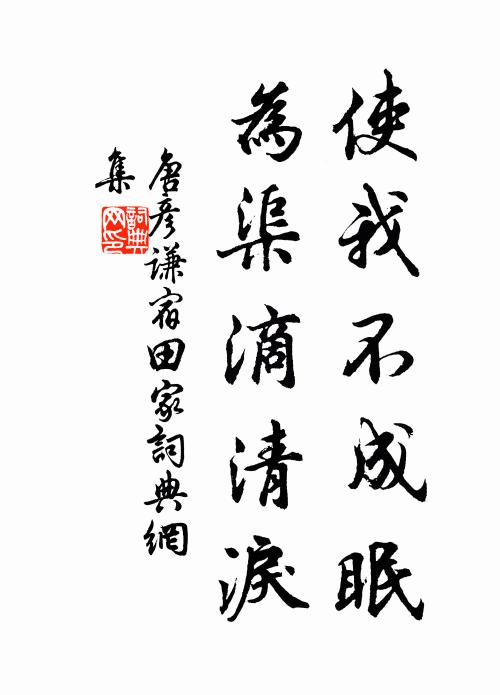 使我不成眠
為渠滴清淚
唐彥謙宿田家詞典網
集
詞典
网印